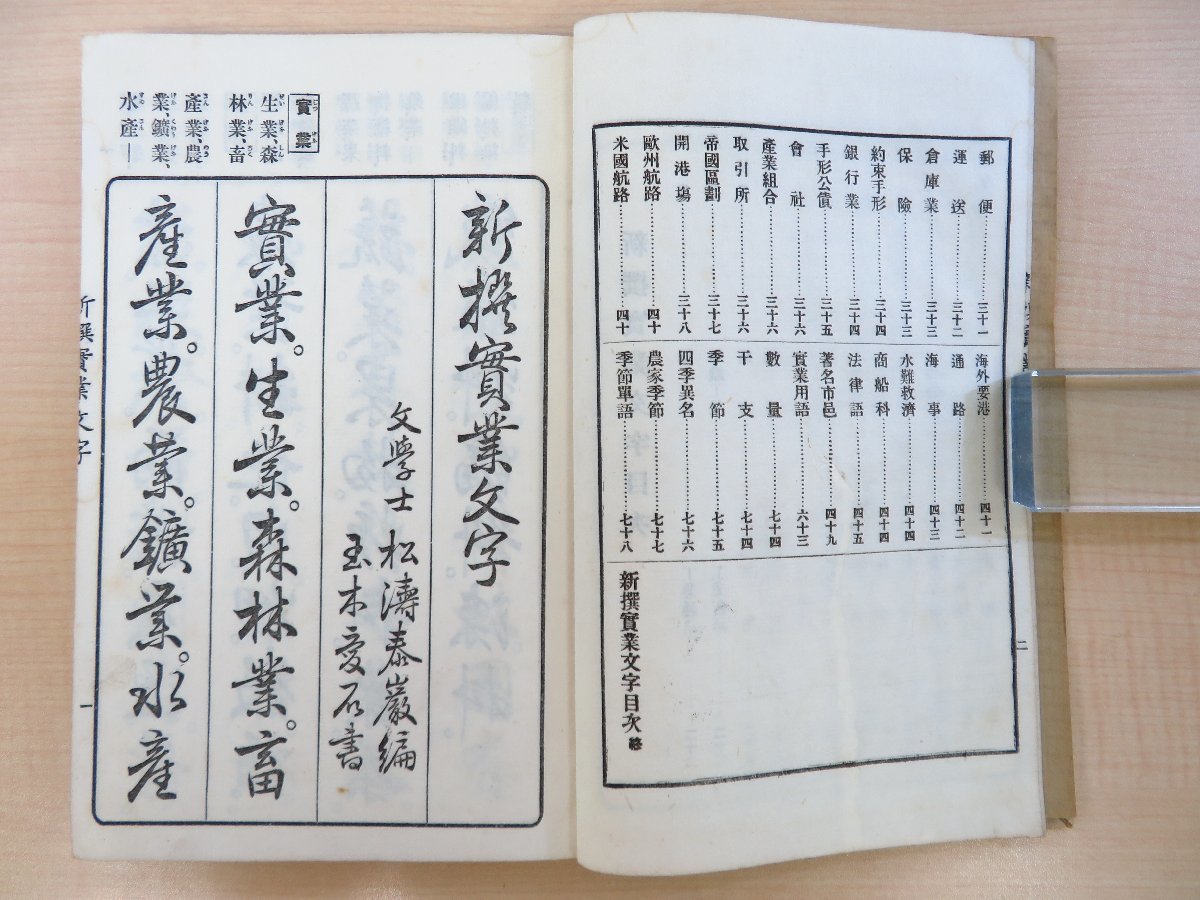 郵便………三十一
運送………三十二
倉庫業………三十三
保險………三十三
約束手形………三十四
銀行業………三十四
手形公債………三十五
會社………三十六
產業組合………三十六
取引所………三十六
帝國區劃………三十七
開港場………三十八
歐州航路………四十
米國航路………四十
海外要港………四十一
通路………四十二
海事………四十三
水難救濟………四十四
商船科………四十四
法律語………四十五
著名市邑………四十九
實業用語………六十三
數量………七十四
干支………七十四
季節………七十五
四季異名………七十六
農家季節………七十七
季節單語………七十八
新撰實業文字目次終
二
實業
生業、森
林業、畜
產業、農
業、鑛業、
水產—
新撰實業文字
文學士 松濤泰巖編
玉木愛石書
實業。生業。森林業。畜
產業。農業。鑛業。水產
新撰實業文字
一